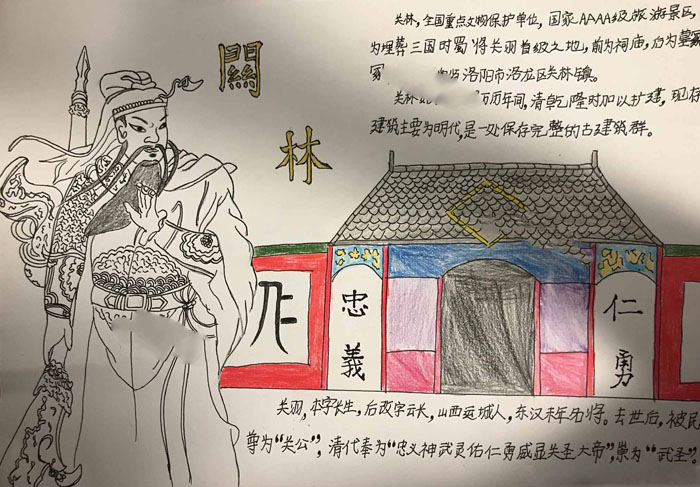 关林，全国重点文物保护单位，国家AAAA级旅游景区，
为埋葬三国时蜀将关羽首级之地，前为祠庙，后为墓冢
洛阳市洛龙区关林镇。
关林 万历年间，清乾隆时加以扩建，现存
建筑主要为明代，是一处保存完整的古建筑群。
關
林
忠
義
仁
勇
关羽，本字长生，后改字云长，山西运城人，东汉末年名将。去世后，被民
尊为“关公”，清代奉为“忠义神武灵佑仁勇威显关圣大帝”，崇为“武圣”。